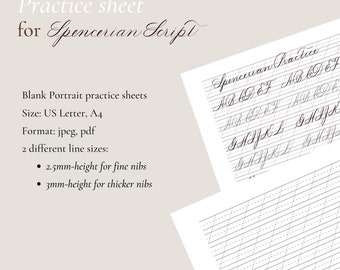 Practice sheet
for Spencerian Script
Blank Portrait practice sheets
Size: US Letter, A4
Format: jpeg, pdf
2 different line sizes:
• 2.5mm-height for fine nibs
• 3mm-height for thicker nibs
Spencerian Practice
A B C D E F A B C D E F
A B C D E F A B C D E F
G H I J K L G H I J K L
G H I J K L G H I J K L